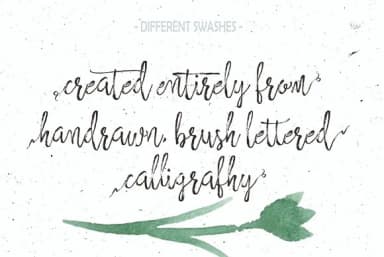 - DIFFERENT SWASHES -
created entirely from
handrawn, brush lettered
calligrafhy